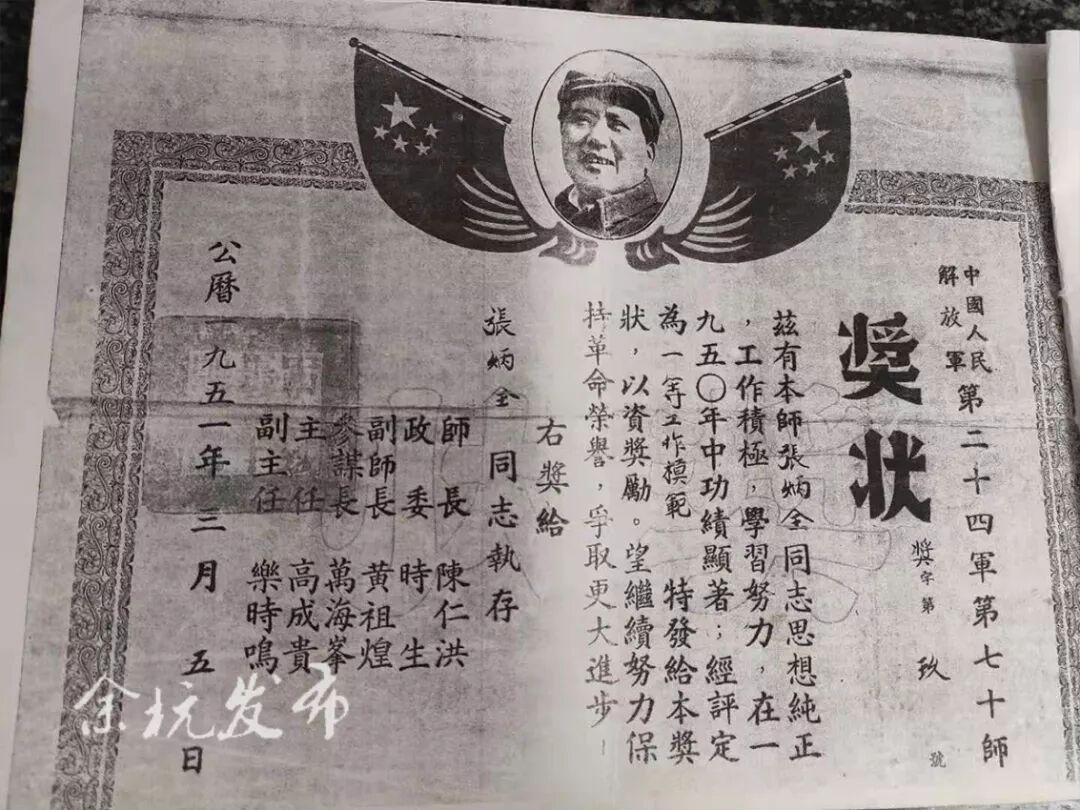 中國人民解放軍第二十四軍第七十師
獎狀
獎字第 玖 號
茲有本師張炳全同志思想純正
，工作積極，學習努力，在一
九五〇年中功績顯著；經評定
為一等工作模範 特發給本獎
狀，以資獎勵。望繼續努力保
持革命榮譽，爭取更大進步－
右獎給
張炳全同志執存
師長 陳仁洪
政委 時生
副師長 黃祖煌
參謀長 萬海峯
主任 高成貴
副主任 樂時鳴
公曆一九五一年三月五日
余杭发布